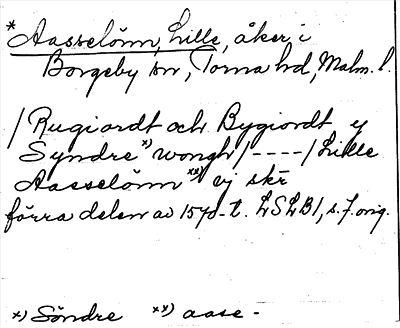 *Aasselönn, Lille, åker i
Borgeby sn, Torna hd, Malm. l.
/Rugiordt och Bygiordt y
Syndre *) wongh/----/Lille
Aasselönn **) vj skr
förra delen av 1570-t. LSLB1, s. 7. orig.
*) Söndre **) aase-